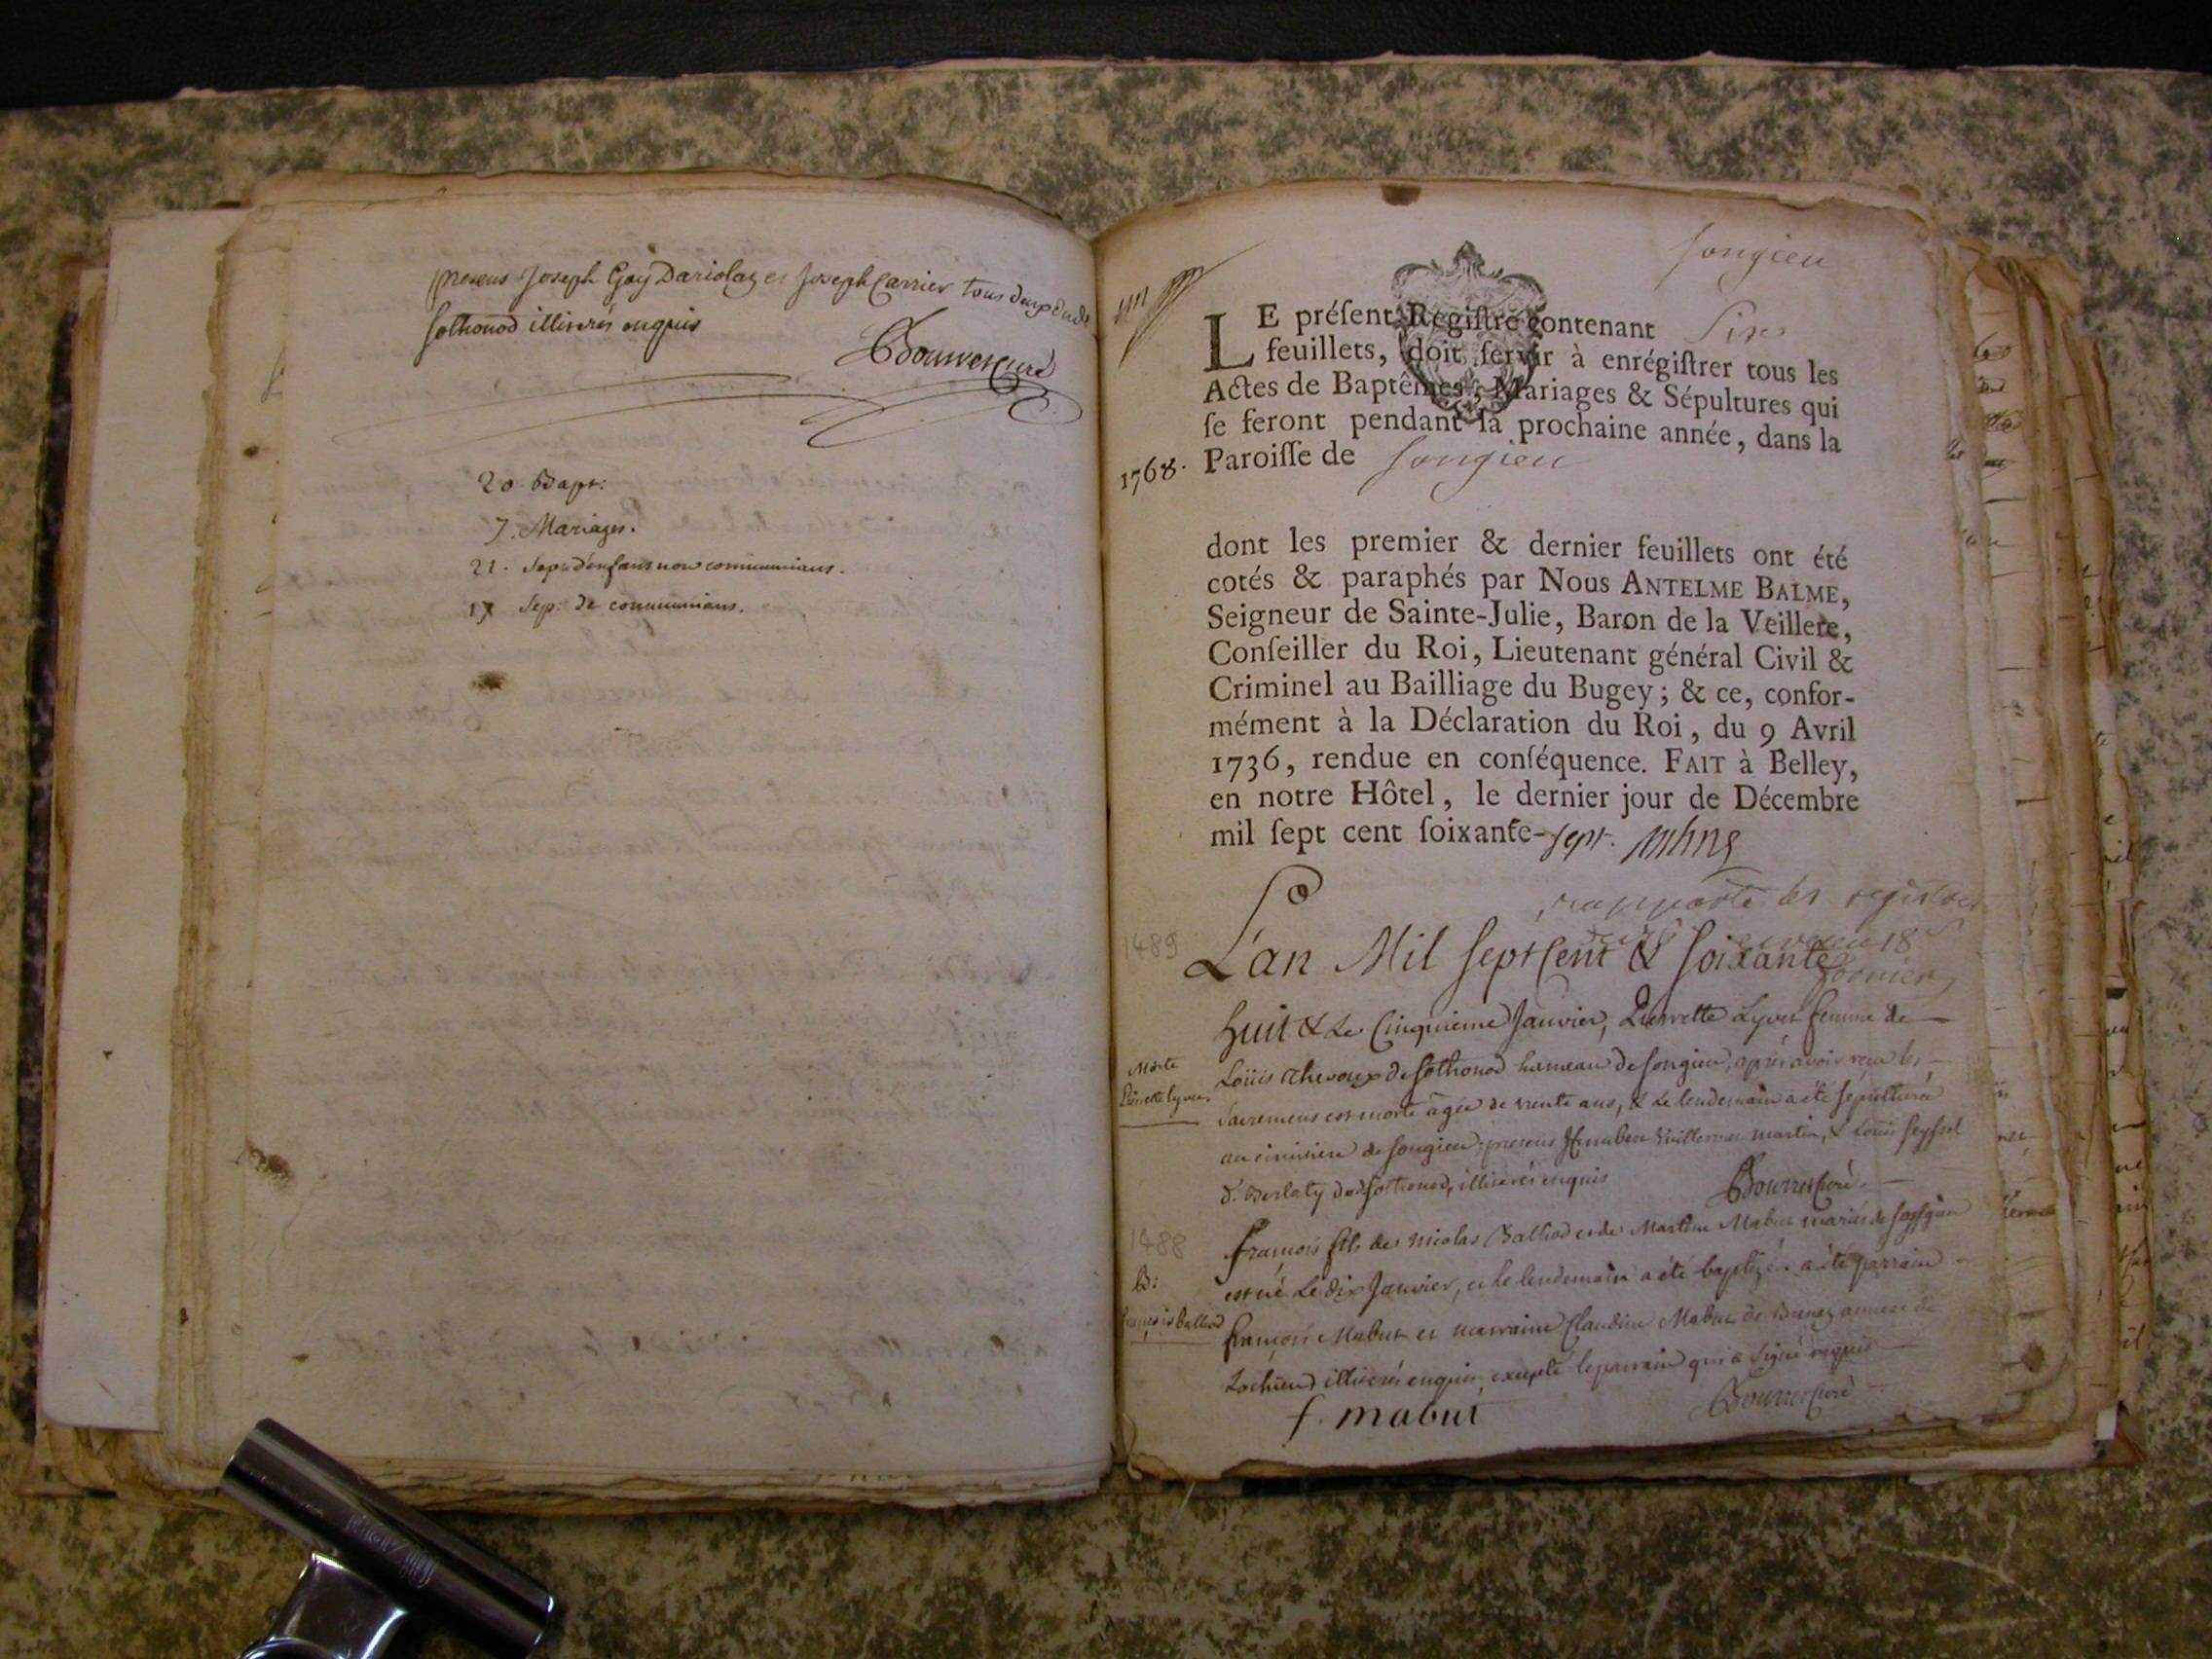 presens Joseph Gay Dariolaz et Joseph Carrier tous deux dudt
sothonod illiterés enquis
Bourrer Curé
20 Bapt:
7. Mariages.
21. Sep: d'enfans non communians.
17 Sep: de communians.
songieu
LE préſent Regiſtre contenant Six
feuillets, doit ſervir à enrégiſtrer tous les
Actes de Baptêmes, Mariages & Sépultures qui
ſe feront pendant la prochaine année, dans la
1768. Paroiſſe de songieu
dont les premier & dernier feuillets ont été
cotés & paraphés par Nous ANTELME BALME,
Seigneur de Sainte-Julie, Baron de la Veillere,
Conſeiller du Roi, Lieutenant général Civil &
Criminel au Bailliage du Bugey; & ce, confor-
mément à la Déclaration du Roi, du 9 Avril
1736, rendue en conſéquence. FAIT à Belley,
en notre Hôtel, le dernier jour de Décembre
mil ſept cent ſoixante-sept.
rapporté les registres
18
1489
L'an Mil sept Cent & soixante
huit & Le Cinquieme Janvier, Pierrette Lyvet femme de
Morte
Pierrette Lyvet
Loüis chevoux de Sothonod hameau de songieu, après avoir reçu les
sacremens est morte âgée de trente ans, & Le lendemain a été sépulturée
au cimitiere de songieu, presens Humbert Vuillermet martin, & Loüis seyssel
d. Berlaty de sothonod, illiterés enquis
Bourrer Curé
1488
B:
françois Balliod
françois fils de Nicolas Balliod et de Martine Mabut mariés de
est né Le dix Janvier, et le lendemain a été baptizé, a été parrain
françois Mabut et marraine Claudine Mabut de Brenaz annexe de
Lochieu illiterés enquis, excepté le parrain qui a signé requis
f. mabut
Bourrer Curé